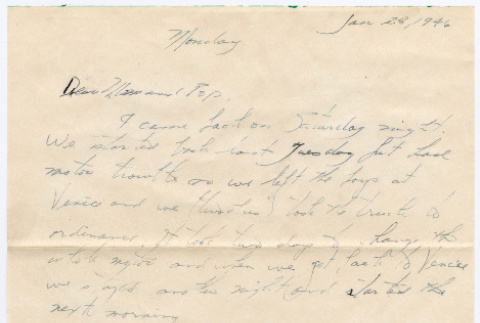 Jan 28, 1946
Monday
Dear Mom and Pop,
I came back on Saturday night.
We started back last Tuesday but had
motor trouble so we left the boys at
Venice and we took the truck to
ordinance. It took two days to change the
whole motor and when we got back to Venice
we stayed another night and started the
next morning